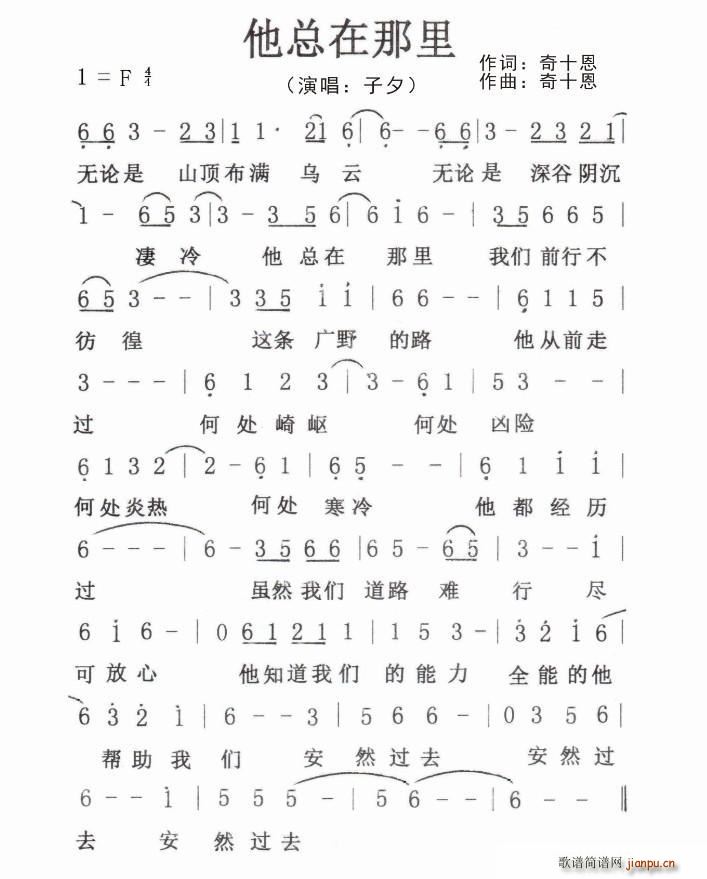 他总在那里
作词：奇十恩
1=F 4/4
（演唱：子夕）
作曲：奇十恩
6 6 3 - 2 3 | 1 1 · 2 1 6 | 6 - - 6 6 | 3 - 2 3 2 1 |
无论是 山顶布满 乌云 无论是 深谷阴沉
1 - 6 5 3 | 3 - 3 5 6 | 6 i 6 - | 3 5 6 6 5 |
凄冷 他总在 那里 我们前行不
6 5 3 - - | 3 3 5 i i | 6 6 - - | 6 1 1 5 |
彷徨 这条广野 的路 他从前走
3 - - - | 6 1 2 3 | 3 - 6 1 | 5 3 - - |
过 何处崎岖 何处 凶险
6 1 3 2 | 2 - 6 1 | 6 5 - - | 6 1 i i |
何处炎热 何处 寒冷 他都经历
6 - - - | 6 - 3 5 6 6 | 6 5 - 6 5 | 3 - - i |
过 虽然我们 道路 难 行 尽
6 i 6 - | 0 6 1 2 1 1 | 1 5 3 - | 3 2 i 6 |
可放心 他知道我们 的能力 全能的他
6 3 2 i | 6 - - 3 | 5 6 6 - | 0 3 5 6 |
帮助我们 安然过去 安然过
6 - - i | 5 5 5 - | 5 6 - - | 6 - - ‖
去 安然过去
歌谱简谱网 jianpu.cn